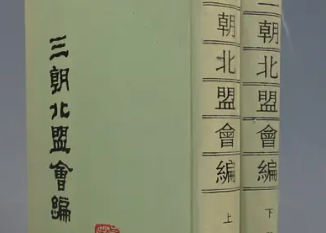 三朝北盟會編
朝北盟會編 上
三朝北盟會編 下